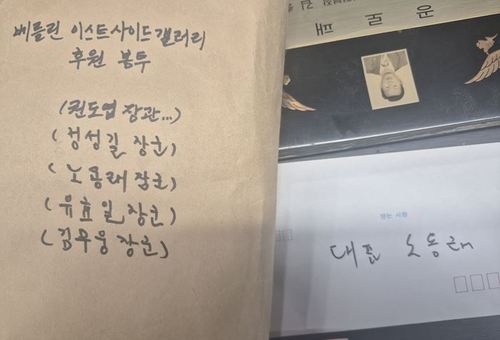 베를린 이스트사이드갤러리
후원 봉투
(권도엽 장관...)
(정성길 장군)
(노용래 장군)
(유효일 장군)
(김무웅 장군)
공로패
받는 사람
대표 노동래